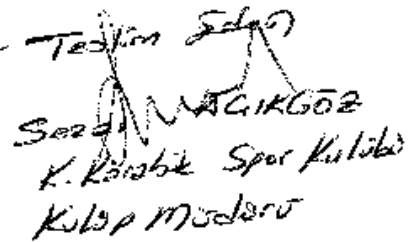 - Teslim Eden
Sezai AÇIKGÖZ
K. Karabük Spor Kulübü
Kulüp Müdürü